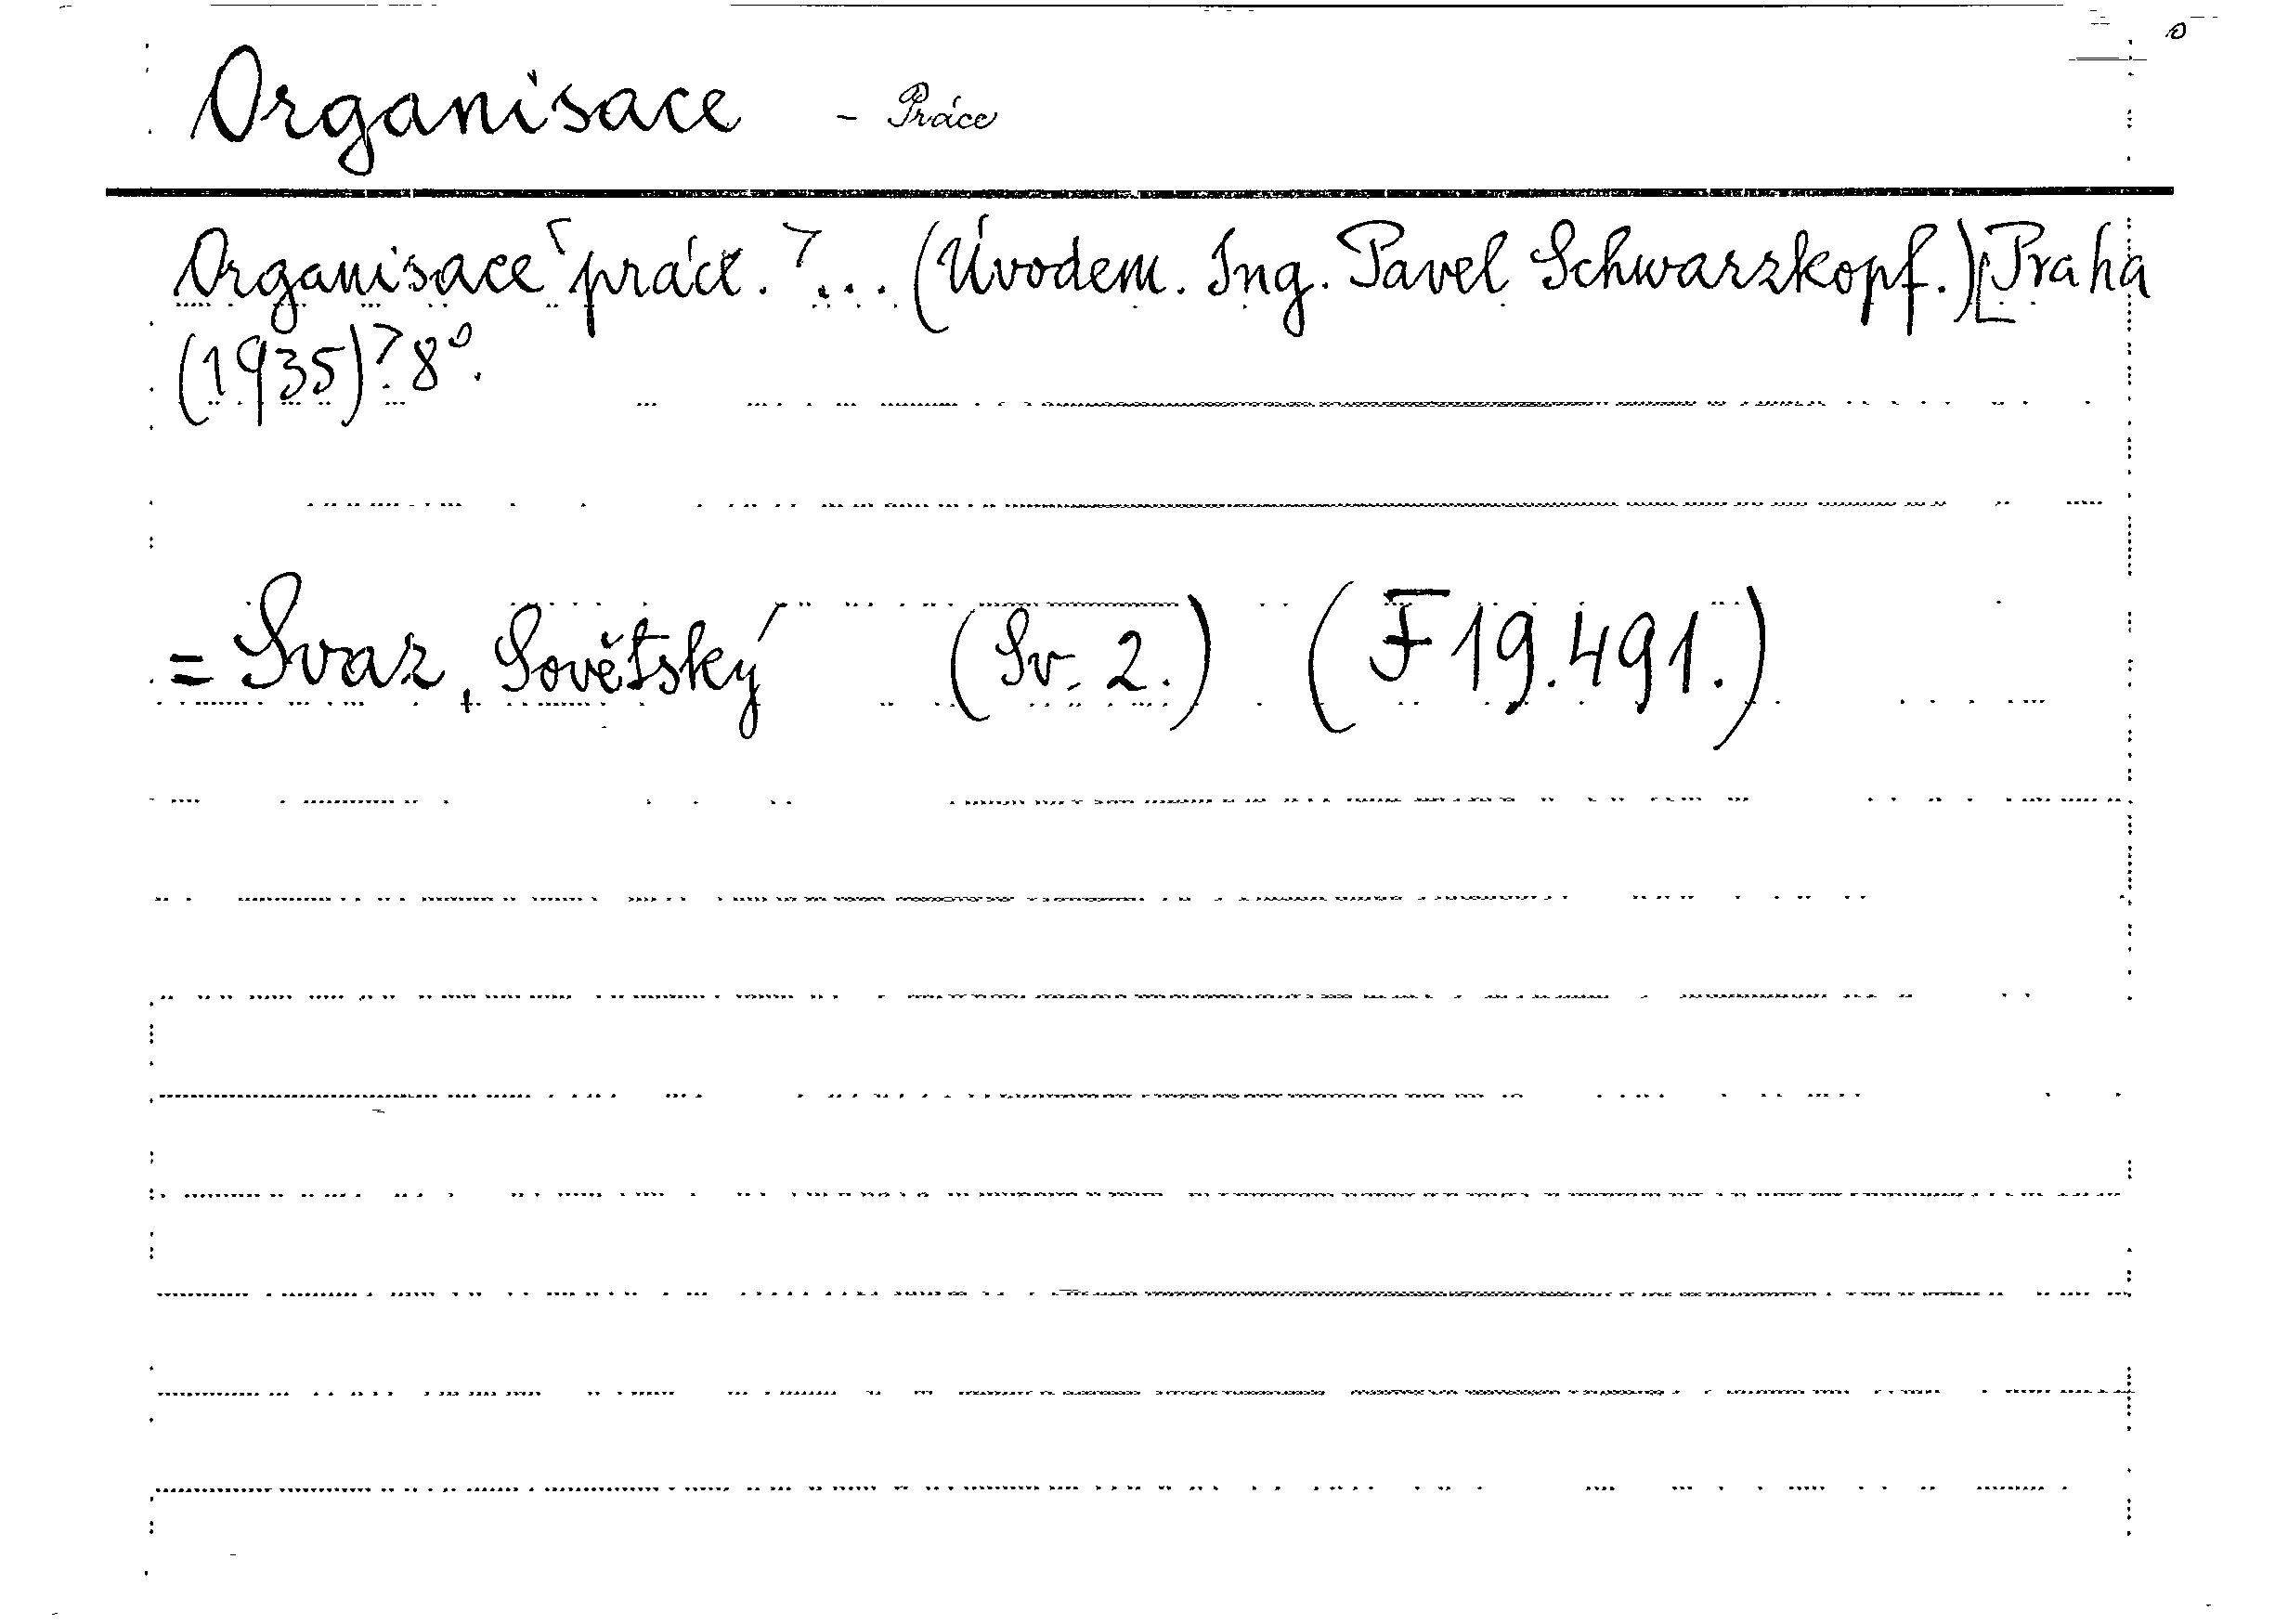 Organisace - Práce
Organisace práce. ... (Úvodem. Ing. Pavel Schwarzkopf.) Praha
(1935). 8°.
= Svaz, Sovětský (Sv. 2.) (F 19.491.)